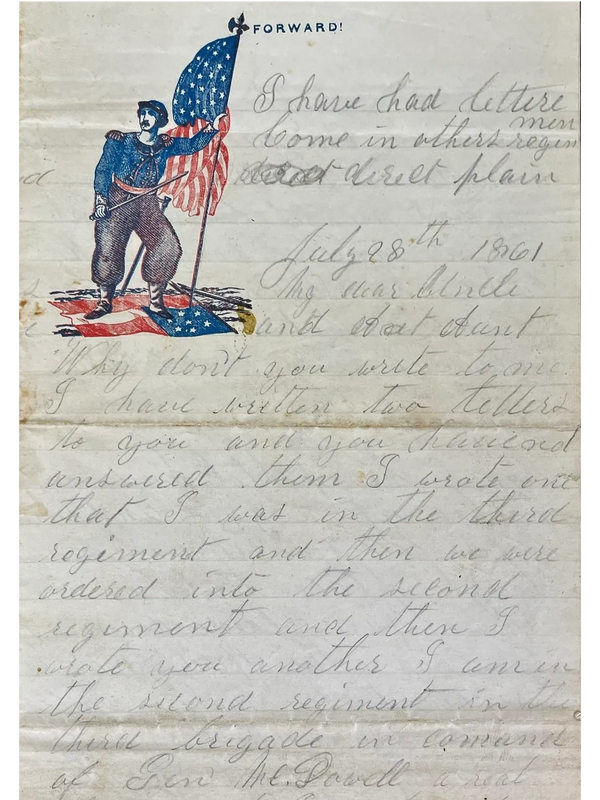 FORWARD!
I have had lettere
Come in others regim
men
direct direct plain
July 28th 1861
My dear Unclle
and Aut Aunt
Why don't you write to me
I have written two letters
to you and you have not
answered them I wrote one
that I was in the third
regiment and then we were
ordered into the second
regiment and then I
wrote you another I am in
the second regiment in the
third brigade in comand
of Gen McDowell a neat